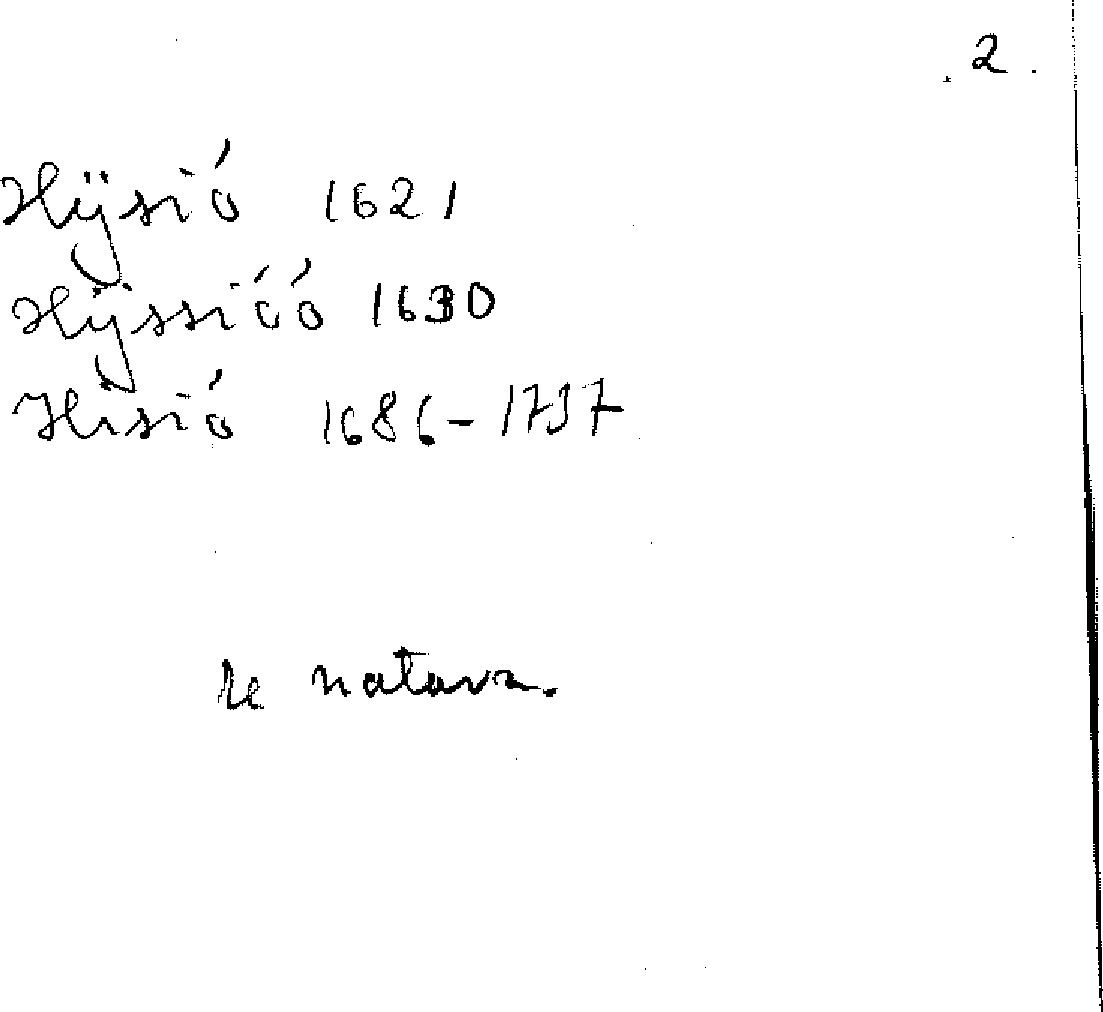 . 2 .
Hÿsió 1621
Hÿssióó 1630
Hisió 1686-1737
natava.